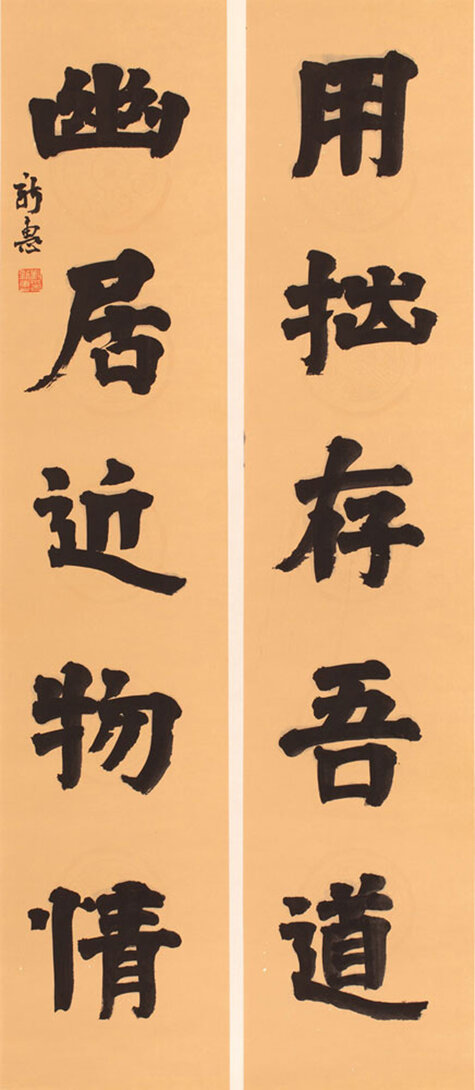 用拙存吾道
幽居近物情